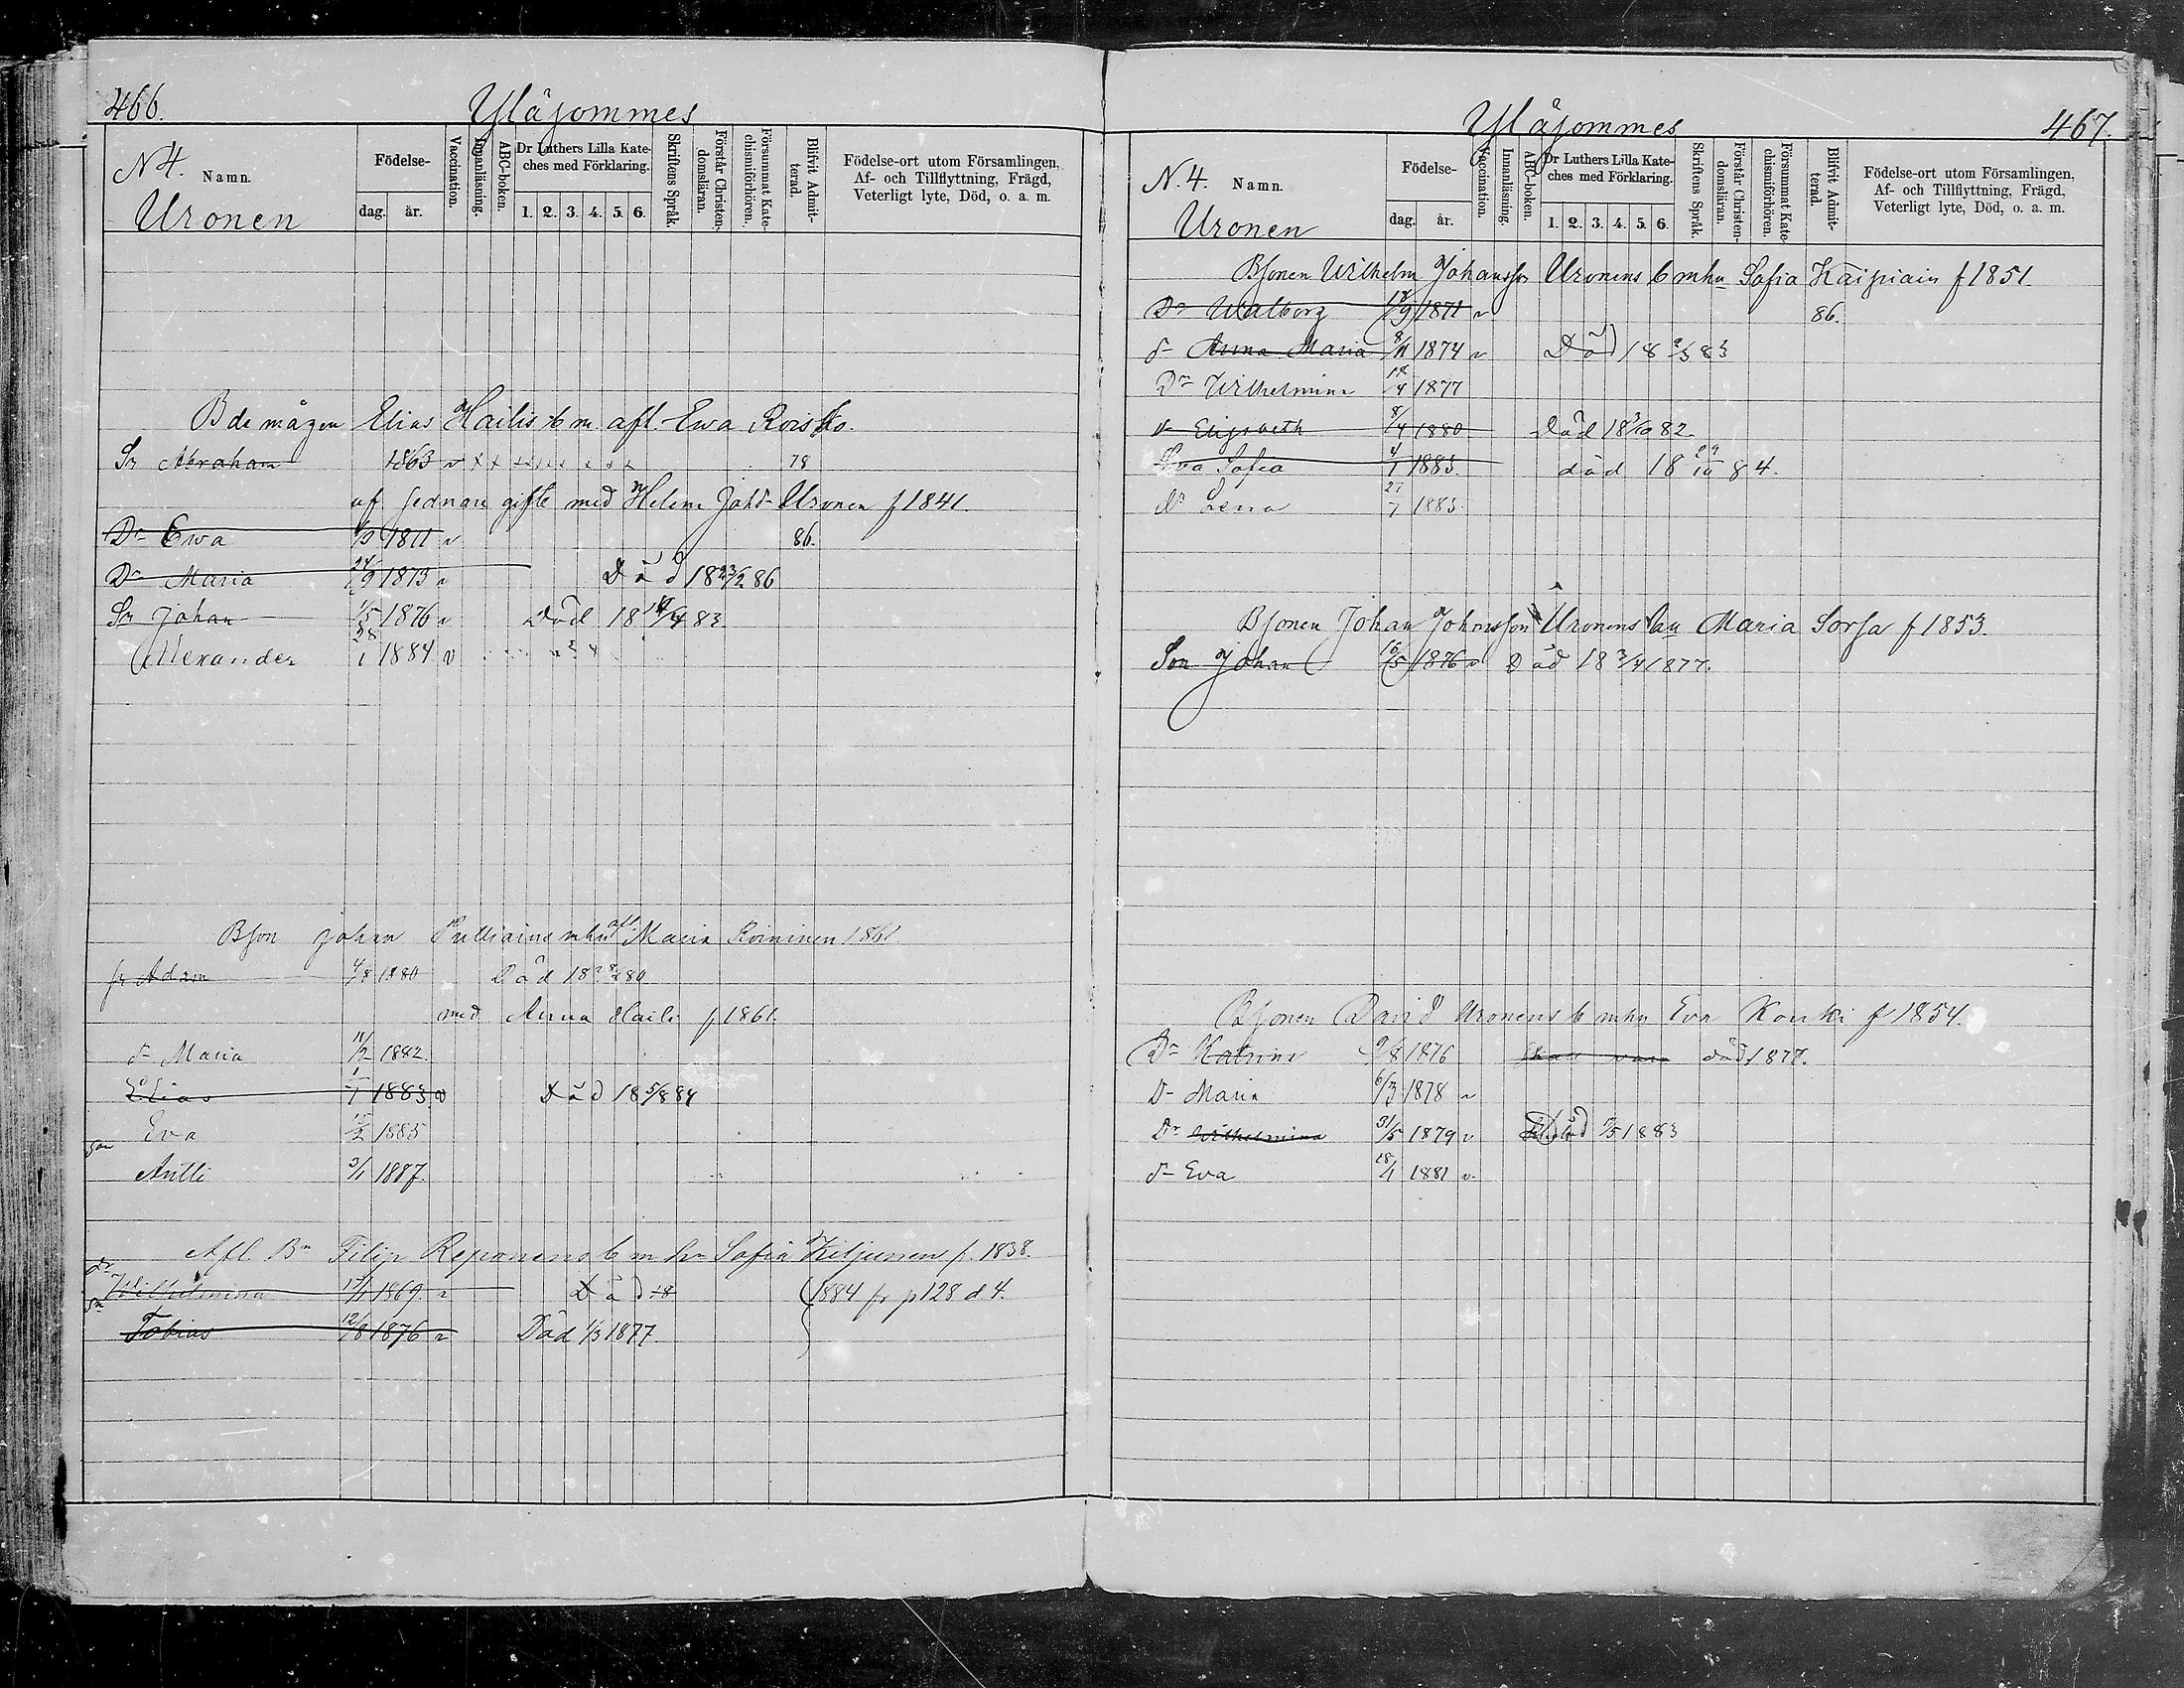 466.
Yläjommes
N 4. Namn.
Uronen
Födelse-
dag. år.
Vaccination.
Innanläsning.
ABC-boken.
Dr Luthers Lilla Kate-
ches med Förklaring.
1. 2. 3. 4. 5. 6.
Skriftens Språk.
Förstår Christen-
domsläran.
Försummat Kate-
chismiförhören.
Blifvit Admit-
terad.
Födelse-ort utom Församlingen,
Af- och Tillflyttning, Frägd,
Veterligt lyte, Död, o. a. m.
Bde mågen Elias Hailis b m. afl. Ewa Roisko.
Sn Abraham 1863 v x x x x x x x x x 78
af sednare gifte med Helena Johd Uronen f 1841.
Dr Ewa 1871 v 86.
Dr Maria 24/9 1873 v Död 18 23/2 86
Sn Johan 1/5 1876 v Död 18 4 83
Alexander 28/1 1884 v
Bson Johan Pulliains mhu afl. Maria Roininen 1861
sr Adam 4/8 1880 Död 18 80
med Anna Haili f 1861.
d Maria 11/2 1882.
Elias 1/1 1883. v Död 18 5/8 84
Eva 12/2 1885
son
Antti 3/1 1887.
Afl. Bn Filip Reponens b m hu Sofia Kiljunen f. 1838.
dr
Wilhelmina 17/1 1869. v Död 18 1884 fr p 128 d 4.
sn
Tobias 12/8 1876 v Död 1/3 1877.
Yläjommes
467.
N. 4. Namn.
Uronen
Födelse-
dag. år.
Vaccination.
Innanläsning.
ABC-boken.
Dr Luthers Lilla Kate-
ches med Förklaring.
1. 2. 3. 4. 5. 6.
Skriftens Språk.
Förstår Christen-
domsläran.
Försummat Kate-
chismiförhören.
Blifvit Admit-
terad.
Födelse-ort utom Församlingen,
Af- och Tillflyttning, Frägd,
Veterligt lyte, Död, o. a. m.
Bsonen Wilhelm Johansson Uronens b mhu Sofia Kaipiain f 1851.
Dr Walborg 18/9 1871 v 86.
d Anna Maria 8/11 1874 v Död 18 2/3 83
Dr Wilhelmina 18/4 1877
d Elisabeth 8/4 1880 Död 18 3/10 82.
Eva Sofia 4/1 1883. död 18 29/10 84.
dr Lena 27/7 1885.
Bsonen Johan Johansson Uronens hu Maria Sorsa f 1853.
Son Johan 16/5 1876 v Död 18 3/4 1877.
Bsonen David Uronens b mhu Eva Kouki f 1854.
Dr Katrina 9/8 1876 skall vara död 1877.
D Maria 6/3 1878 v
Dr Wilhelmina 31/5 1879 v Död /5 1883
d Eva 18/1 1881 v.